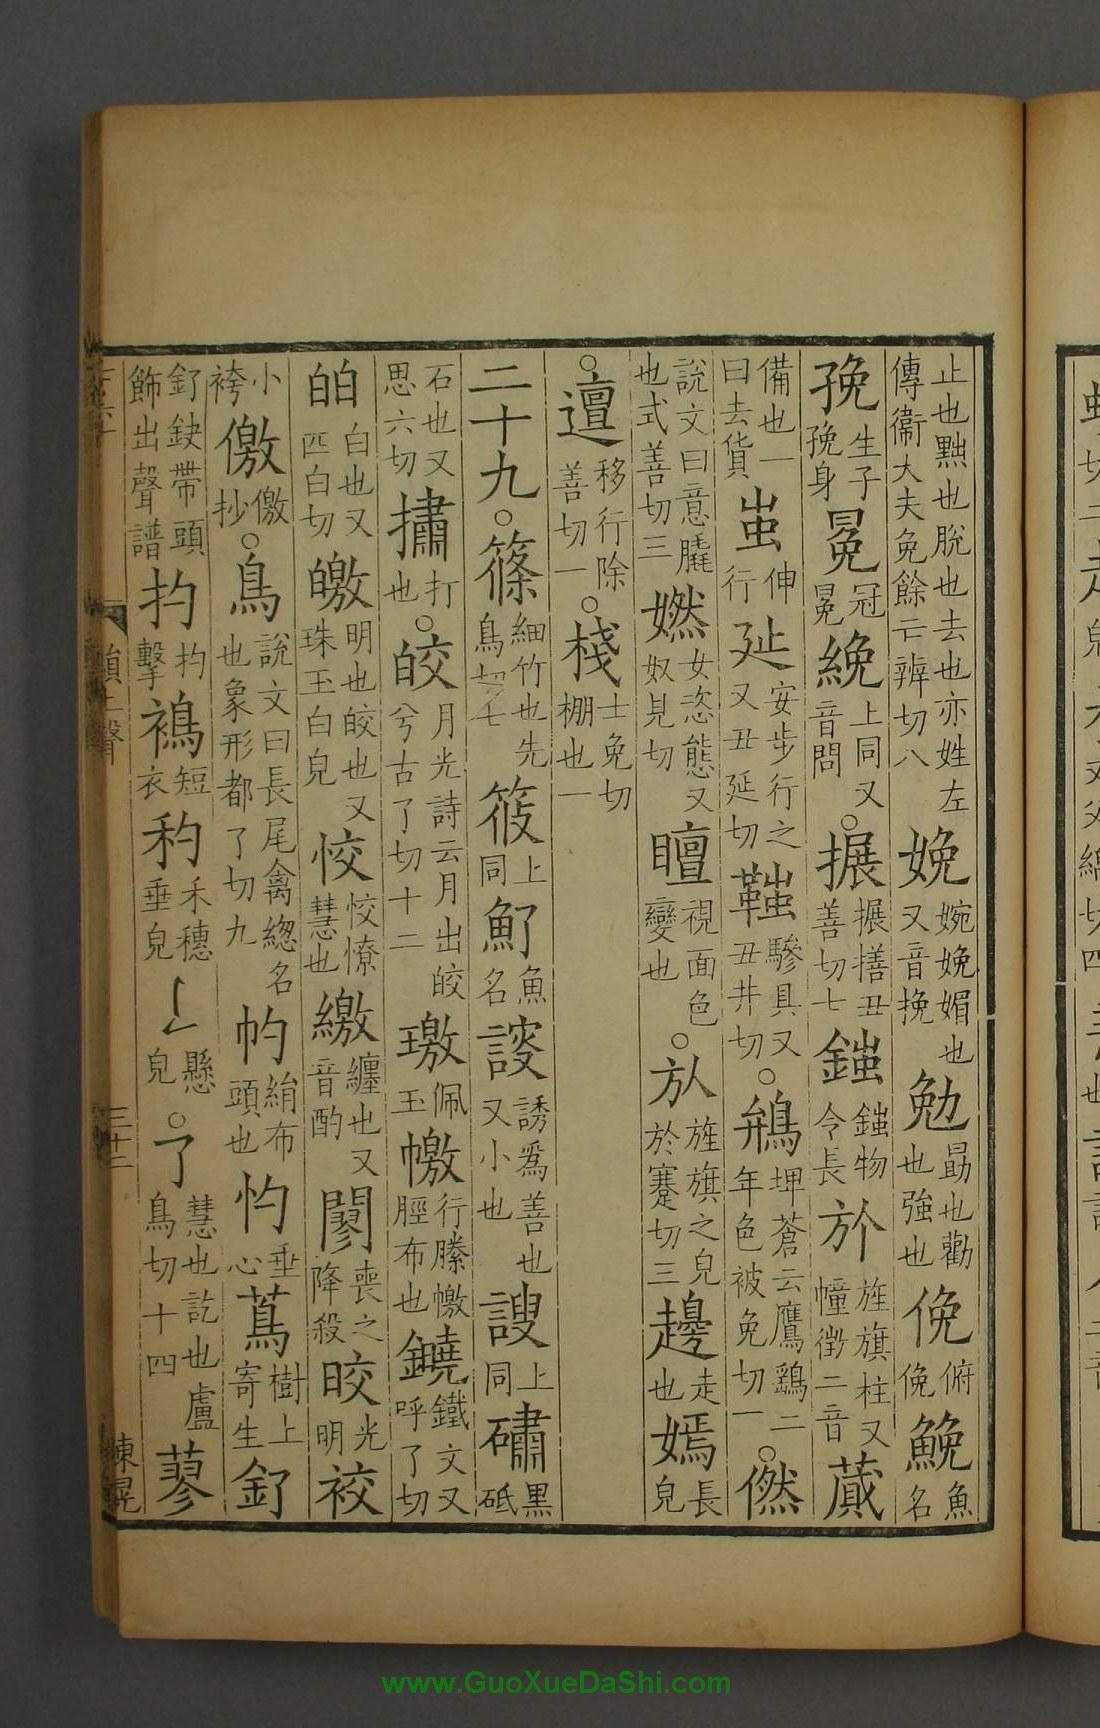 止也黜也脫也去也亦姓左傳衞大夫免餘亡辨切八娩婉娩媚也又音挽勉勗也勸也強也俛俯俛鮸魚名
㝃生子㝃身冕冠冕絻上同又音問○搌搌㩛丑善切七鎡鎡物令長㫃旌旗柱又幢徴二音蕆
備也一曰去貨䖝伸行㢟安步行之又丑延切驂具又丑井切○鴘埤蒼云鷹鷂二年色被免切一○㒄
說文曰意脃也式善切三嬨女恣態又奴見切䁴視面色變也○㫃旌旗之皃於蹇切三䟍走也嫣長皃
○邅移行除善切一○棧士免切棚也一
二十九○篠細竹也先鳥切七筱上同魡魚名謏誘爲善也又小也謏上同䃤黑砥
石也又思六切㩋打也○皎月光詩云月出皎兮古了切十二璬佩玉㡰行縢㡰脛布也鐃鐵文又呼了切
皛白也又匹白切皦明也皎也又珠玉白皃恔恔憭慧也繳纏也又音酌䦧喪之降殺晈光明䘨
小袴儌儌抄○鳥說文曰長尾禽緫名也象形都了切九㡯絹布頭也忇垂心蔦樹上寄生釕
釕鈌帶頭飾出聲譜扚扚擊䄪短衣䄪禾穗垂皃𠄌懸皃○了慧也訖也盧鳥切十四蓼
三十二
陳晃
www.GuoXueDaShi.com